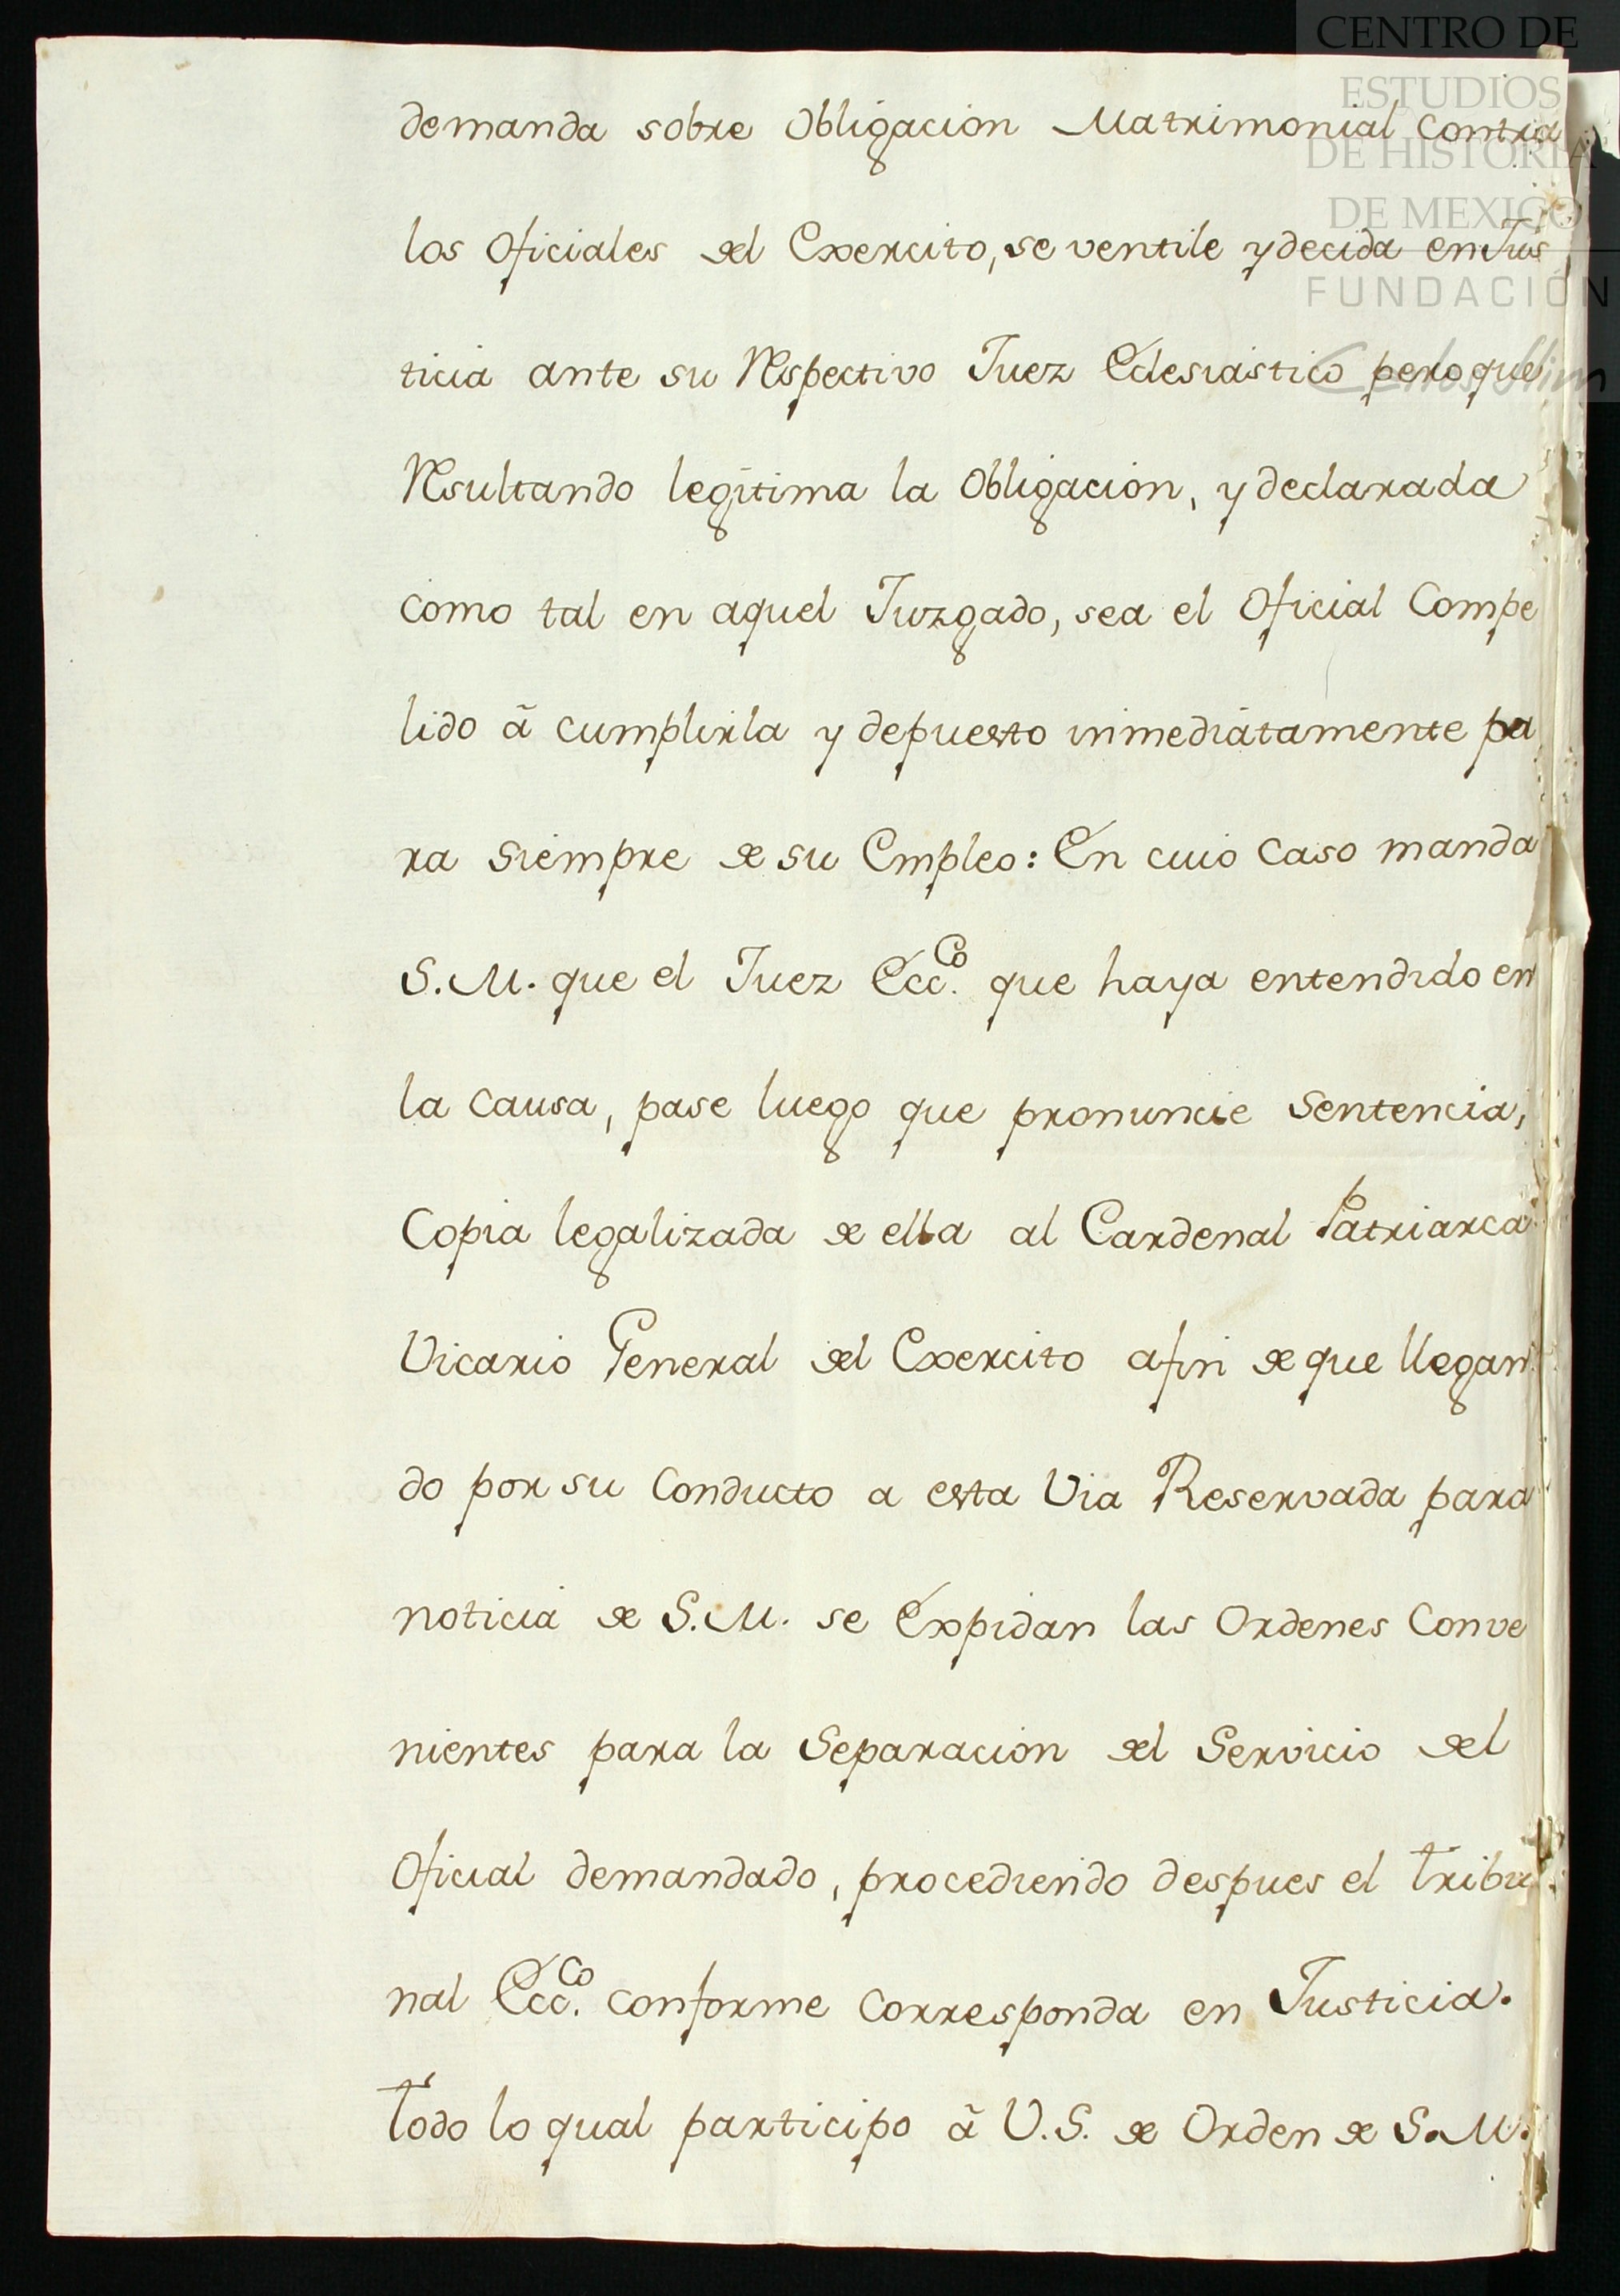 CENTRO DE
ESTUDIOS
DE HISTORIA
DE MEXICO
FUNDACIÓN
demanda sobre Obligacion Matrimonial contra
los Oficiales del Exercito, se ventile y decida en Jus
ticia ante su Respectivo Juez Eclesiástico pero que
Resultando legitima la Obligacion, y declarada
como tal en aquel Juzgado, sea el Oficial Compe
lido ã cumplirla y depuesto inmediatamente pa
ra siempre de su Empleo: En cuio Caso manda
S.M. que el Juez Ecc.co que haya entendido en
la Causa, pase luego que pronuncie Sentencia,
Copia legalizada de ella al Cardenal Patriarca
Vicario General del Exercito afin de que llegan
do por su Conducto a esta Via Reservada para
noticia de S.M. se Expidan las Ordenes Conve
nientes para la Separacion del Servicio del
Oficial demandado, procediendo despues el tribu
nal Ecc.co conforme Corresponda en Justicia.
Todo lo qual participo ã V.S. de Orden de S.M.